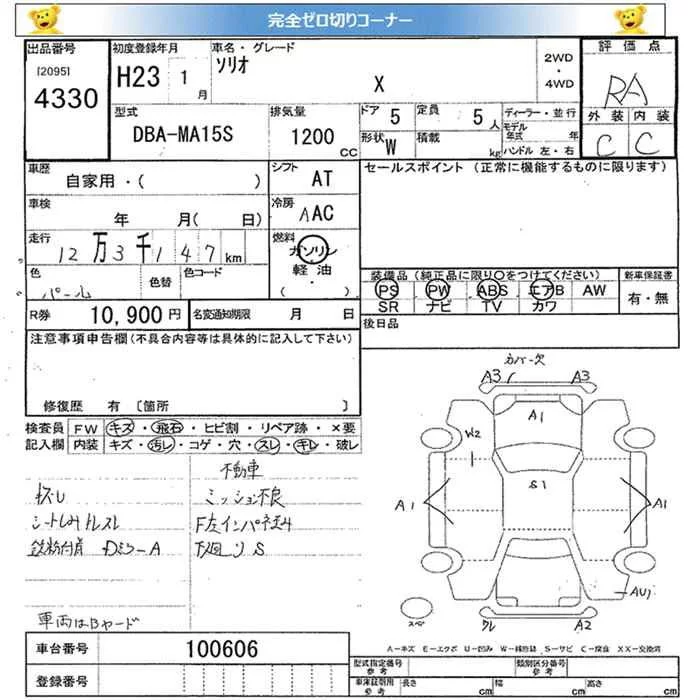 完全ゼロ切りコーナー
出品番号
[2095]
4330
初度登録年月
H23 1月
車名・グレード
ソリオ
X
2WD
・
4WD
評価点
RA
外装 内装
C C
型式
DBA-MA15S
排気量
1200 CC
ドア 5
定員 5人
形状 W
積載 kg
ディーラー・並行
モデル年式 年
ハンドル 左・右
車歴
自家用・( )
シフト AT
セールスポイント (正常に機能するものに限ります)
車検
年 月( 日)
冷房 AAC
走行
12万3千147km
燃料
ガソリン
軽油
( )
色
パール
色替
色コード
装備品(純正品に限り○をつけてください)
PS PW ABS エアB AW
SR ナビ TV カワ
新車保証書
有・無
R券 10,900円
名変通知期限 月 日
後日品
注意事項申告欄(不具合内容等は具体的に記入して下さい)
修復歴 有 〔箇所 〕
検査員記入欄
FW キズ・飛石・ヒビ割・リペア跡・×要
内装 キズ・汚レ・コゲ・穴・スレ・キレ・破レ
不動車
ミッション不良
シートしみキレスレ
下廻りS
車両はBヤード
カバー欠
A3 A3
A1
W2
S1
A1 A1
AU1
スペ
クレ A2
A-キズ E-エクボ U-凹み W-補修跡 S-サビ C-腐食 XX-交換済
車台番号 100606
登録番号
型式指定番号 参考
類別区分番号 参考
車庫証明用 参考
長さ cm 幅 cm 高さ cm